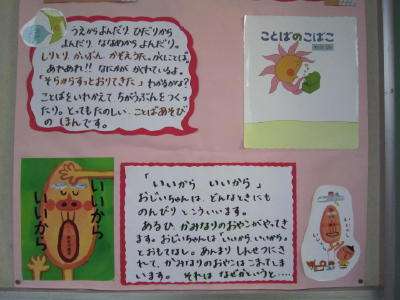 うえからよんだり ひだりから
よんだり ななめから よんだり。
しりとり かいぶん かぞえうた。かくしことば。
あれあれ!! なにかが かくれているよ。
「そらからすっとおりてきた」 わかるかな?
ことばをいれかえて ちがうぶんをつくっ
たり。とってもたのしい ことばあそび
の ほんです。
ことばのこばこ
いいから
いいから
「いいから いいから」
おじいちゃんは、どんなときにも
のんびり こういいます。
あるひ かみなりのおやこが やってき
ます。おじいちゃんは「いいから、いいから。」
とおもてなし。あんまり しんせつにさ
れて、かみなりのおやこは こまってしま
います。 それは なぜかというと‥‥